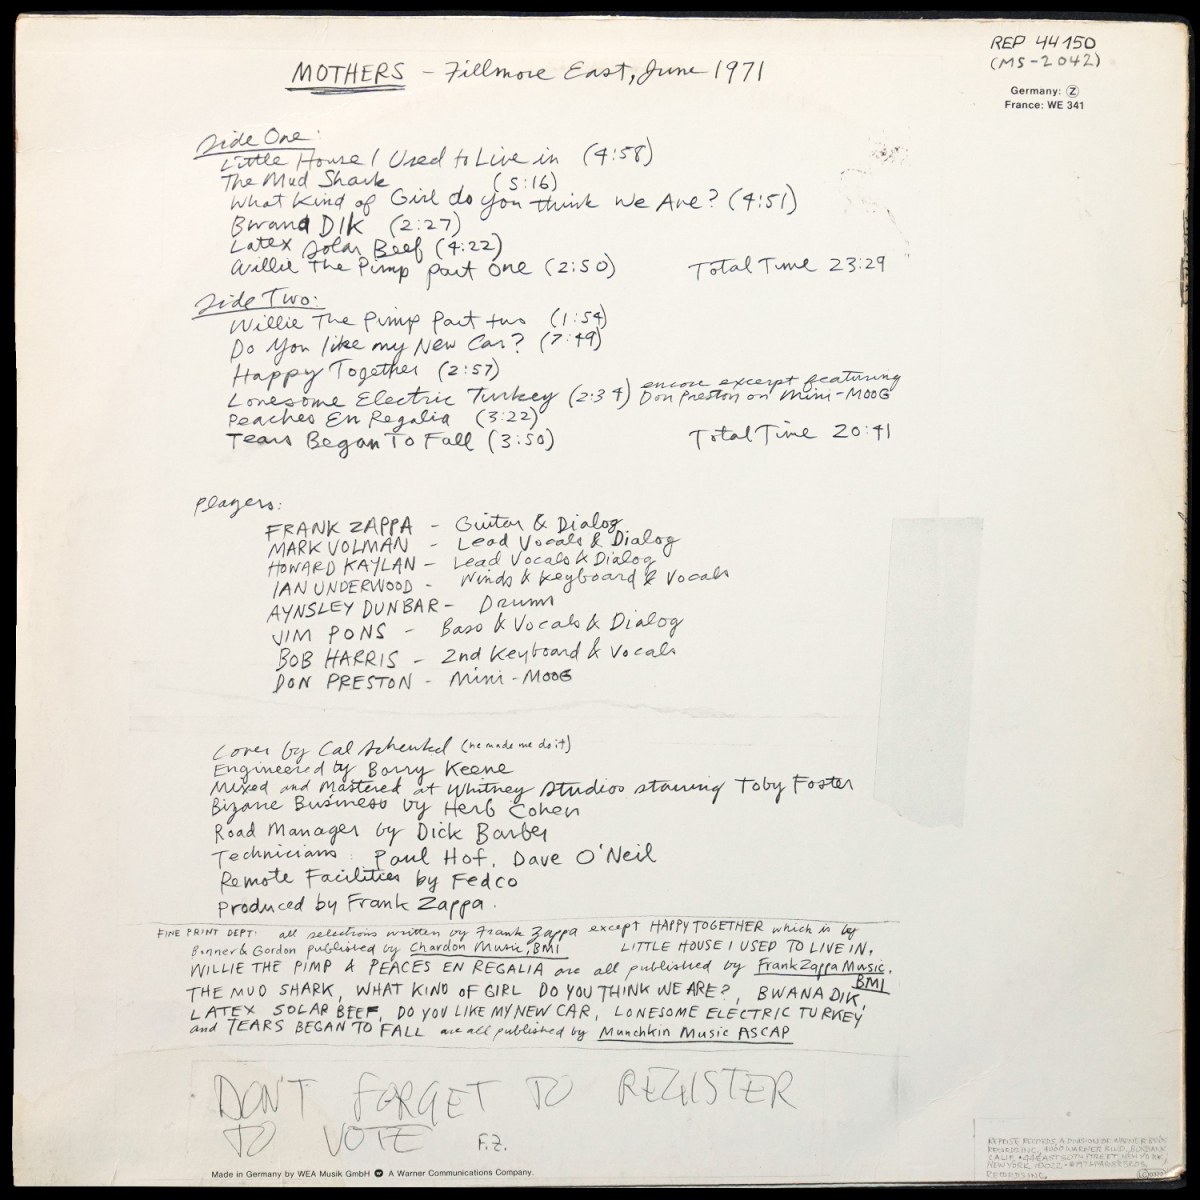 MOTHERS - Fillmore East, June 1971
REP 44150
(MS-2042)
Germany: Z
France: WE 341
Side One:
Little House I Used to Live in (4:58)
The Mud Shark (5:16)
What Kind of Girl do you think We Are? (4:51)
Bwana DIK (2:27)
Latex Solar Beef (4:22)
Willie The Pimp part One (2:50) Total Time 23:29
Side Two:
Willie The Pimp Part two (1:54)
Do You like my New Car? (7:49)
Happy Together (2:57)
Lonesome Electric Turkey (2:34) encore excerpt featuring
Don Preston on Mini-MOOG
Peaches En Regalia (3:22)
Tears Began To Fall (3:50) Total Time 20:41
Players:
FRANK ZAPPA - Guitar & Dialog
MARK VOLMAN - Lead Vocals & Dialog
HOWARD KAYLAN - Lead Vocals & Dialog
IAN UNDERWOOD - Winds & Keyboard & Vocals
AYNSLEY DUNBAR - Drums
JIM PONS - Bass & Vocals & Dialog
BOB HARRIS - 2nd Keyboard & Vocals
DON PRESTON - Mini-MOOG
Cover by Cal Schenkel (he made me do it)
Engineered by Barry Keene
Mixed and Mastered at Whitney Studios starring Toby Foster
Bizarre Business by Herb Cohen
Road Manager by Dick Barber
Technicians: Paul Hof, Dave O'Neil
Remote Facilities by Fedco
Produced by Frank Zappa.
FINE PRINT DEPT: all selections written by Frank Zappa except HAPPY TOGETHER which is by
Bonner & Gordon published by Chardon Music, BMI LITTLE HOUSE I USED TO LIVE IN,
WILLIE THE PIMP & PEACES EN REGALIA are all published by Frank Zappa Music.
BMI
THE MUD SHARK, WHAT KIND OF GIRL DO YOU THINK WE ARE?, BWANA DIK,
LATEX SOLAR BEEF, DO YOU LIKE MY NEW CAR, LONESOME ELECTRIC TURKEY
and TEARS BEGAN TO FALL are all published by Munchkin Music ASCAP
DON'T FORGET TO REGISTER
TO VOTE F.Z.
Made in Germany by WEA Musik GmbH A Warner Communications Company.
REPRISE RECORDS, A DIVISION OF WARNER BROS.
RECORDS INC.